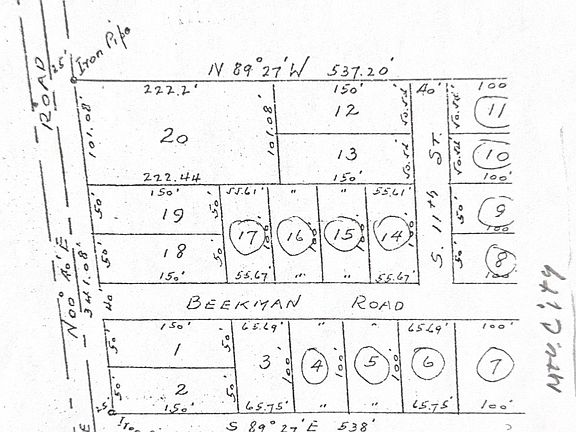 Iron Pipe
25'
ROAD
N 89° 27' W 537.20'
222.2'
150'
40'
100
101.08'
20
101.08'
12
11
13
10
222.44
150'
S. 11th ST.
150'
55.61'
"
"
55.61'
50'
19
50'
17
100'
16
100'
15
100'
14
50'
9
100
50'
18
50'
50'
8
150'
55.67
"
"
55.67
N00° 40' E
341.08'
40'
BEEKMAN ROAD
150'
65.69'
"
"
65.69'
100'
50'
1
50'
3
100'
4
100'
5
100'
6
7
50'
2
150'
65.75'
"
"
65.75'
100'
25'
Iron
S 89° 27' E 538'
E
City